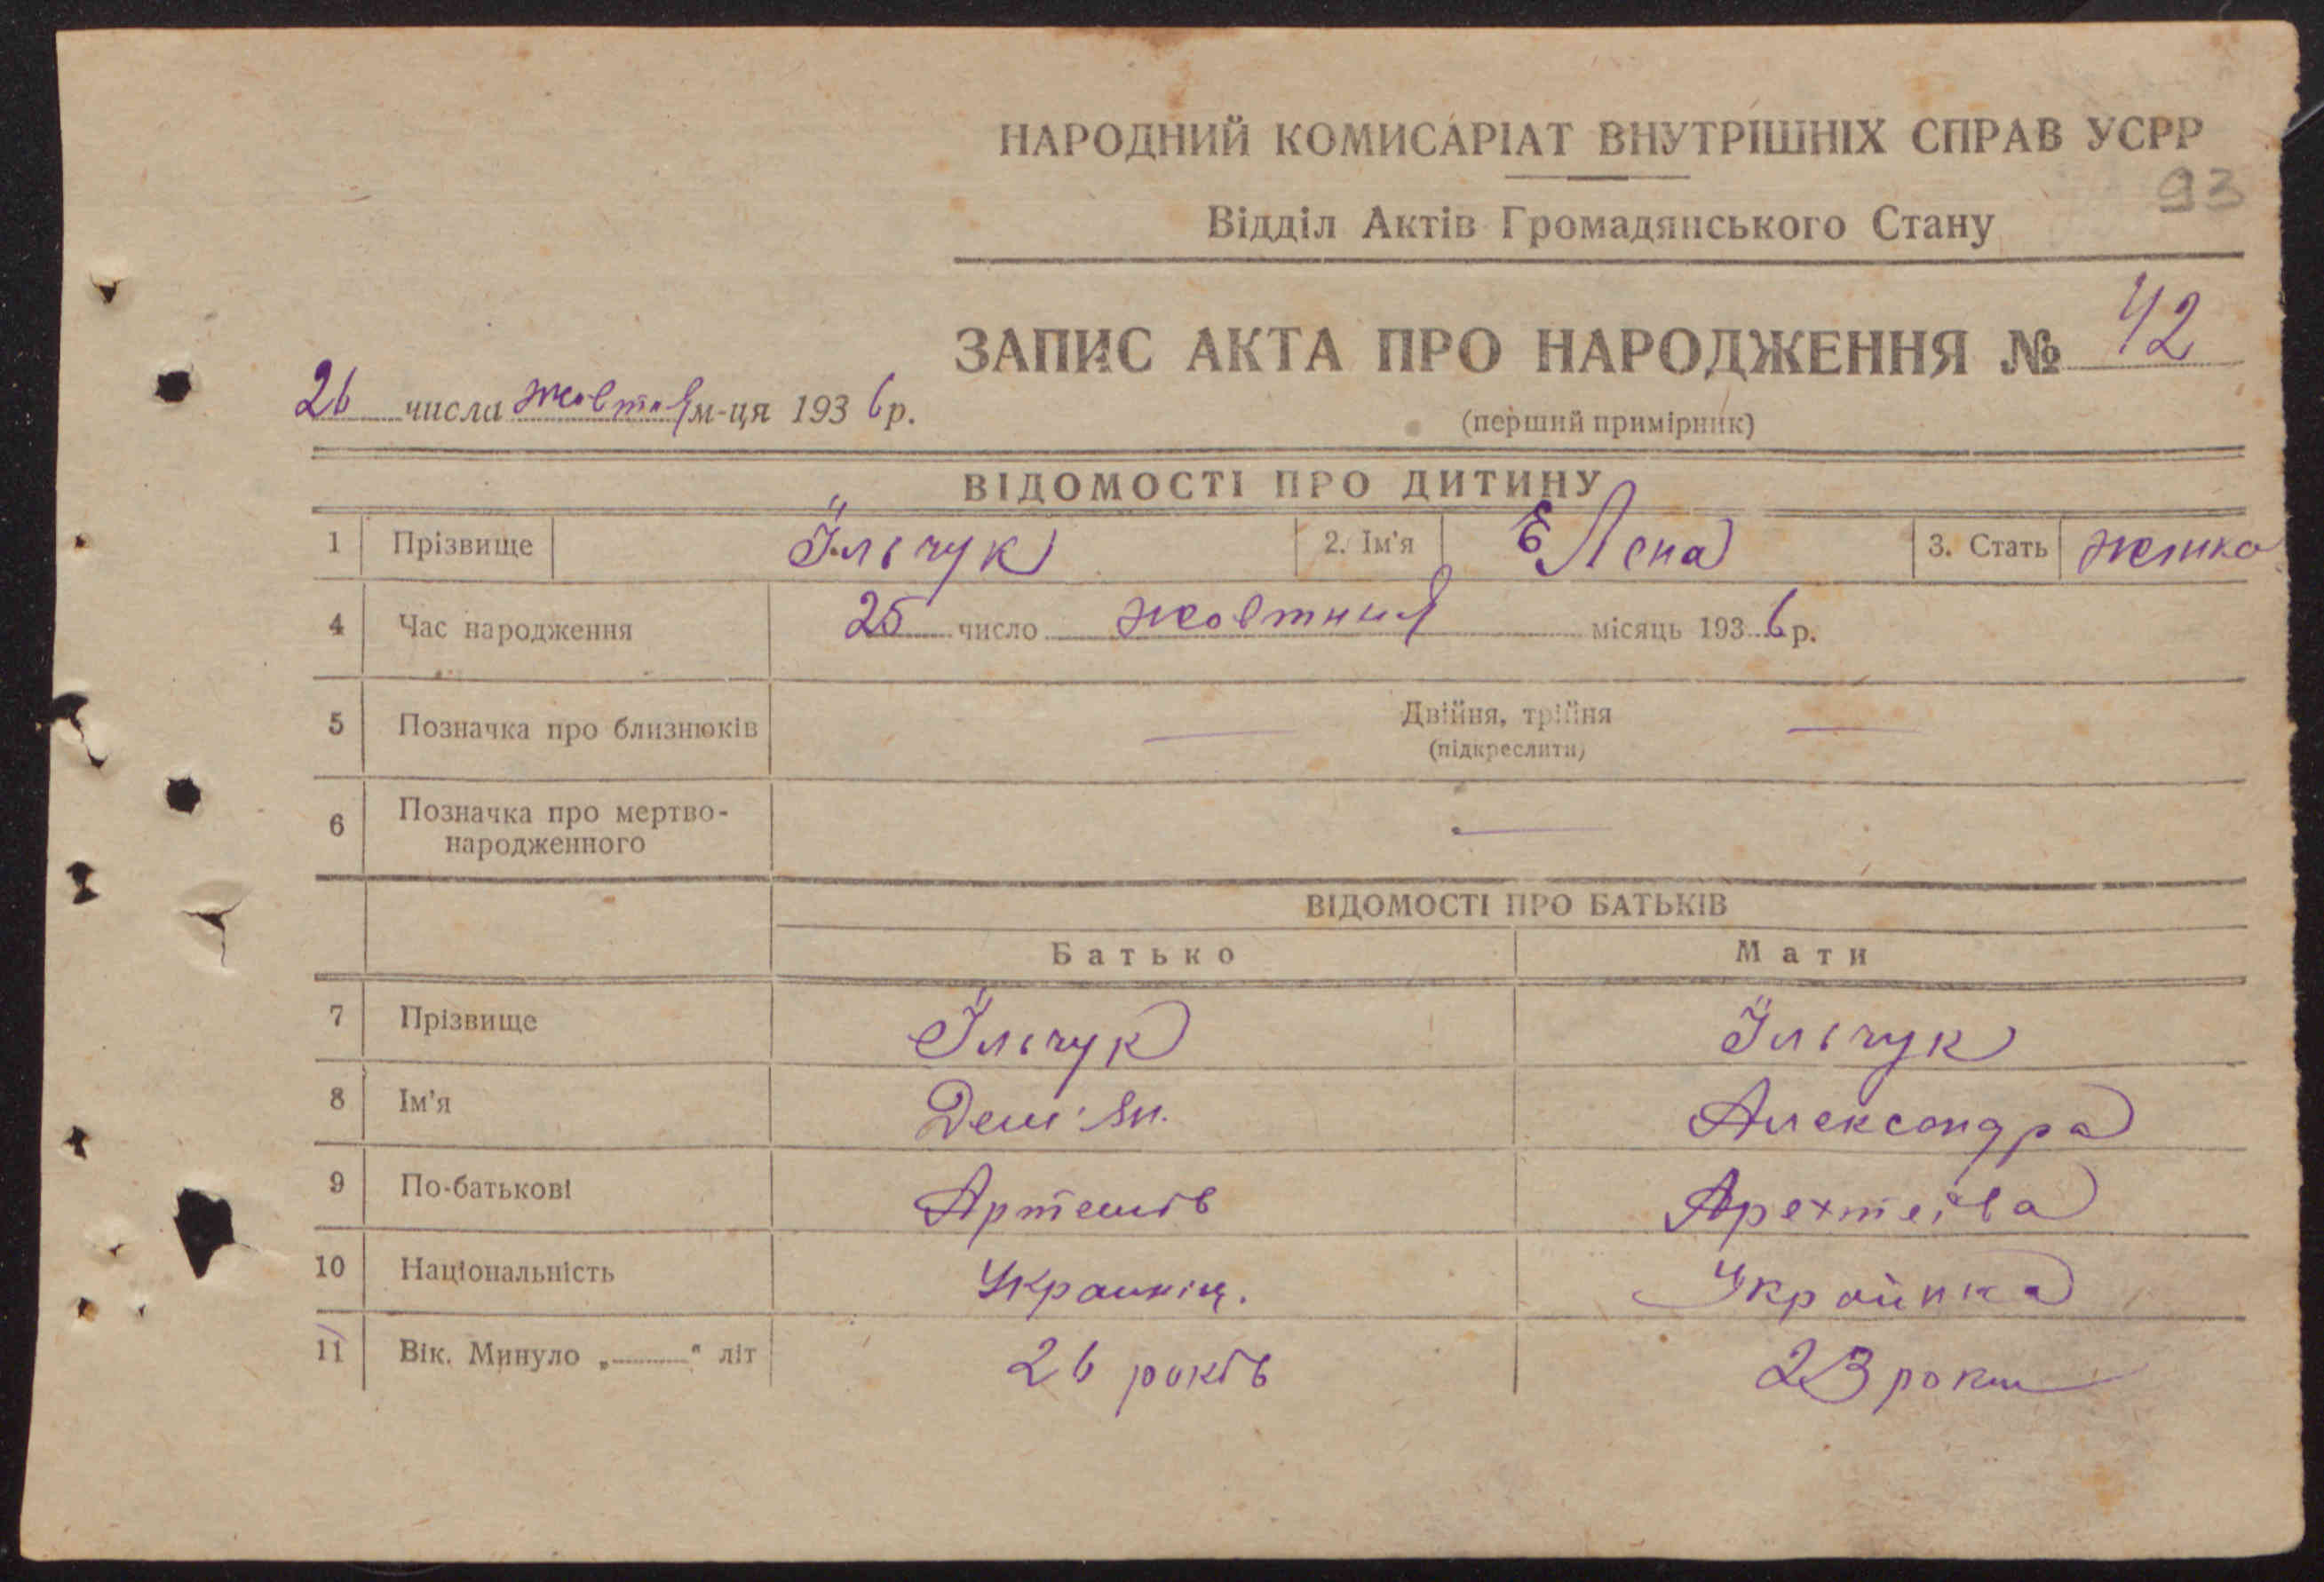 НАРОДНИЙ КОМИСАРІАТ ВНУТРІШНІХ СПРАВ УСРР
93
Відділ Актів Громадянського Стану
ЗАПИС АКТА ПРО НАРОДЖЕННЯ № 42
26 числа жовтня м-ця 1936 р.
(перший примірник)
ВІДОМОСТІ ПРО ДИТИНУ
1 Прізвище Їльчук 2. Ім'я Єлена 3. Стать жінка
4 Час народження 25 число жовтния місяць 1936 р.
5 Позначка про близнюків — Двійня, трійня —
(підкреслити)
6 Позначка про мертво-
народженного —
ВІДОМОСТІ ПРО БАТЬКІВ
Батько Мати
7 Прізвище Їльчук Їльчук
8 Ім'я Дем'ян. Александра
9 По-батькові Артемів
10 Національність Украинің. Украйнка
11 Вік. Минуло „ — “ літ 26 років 23 роки